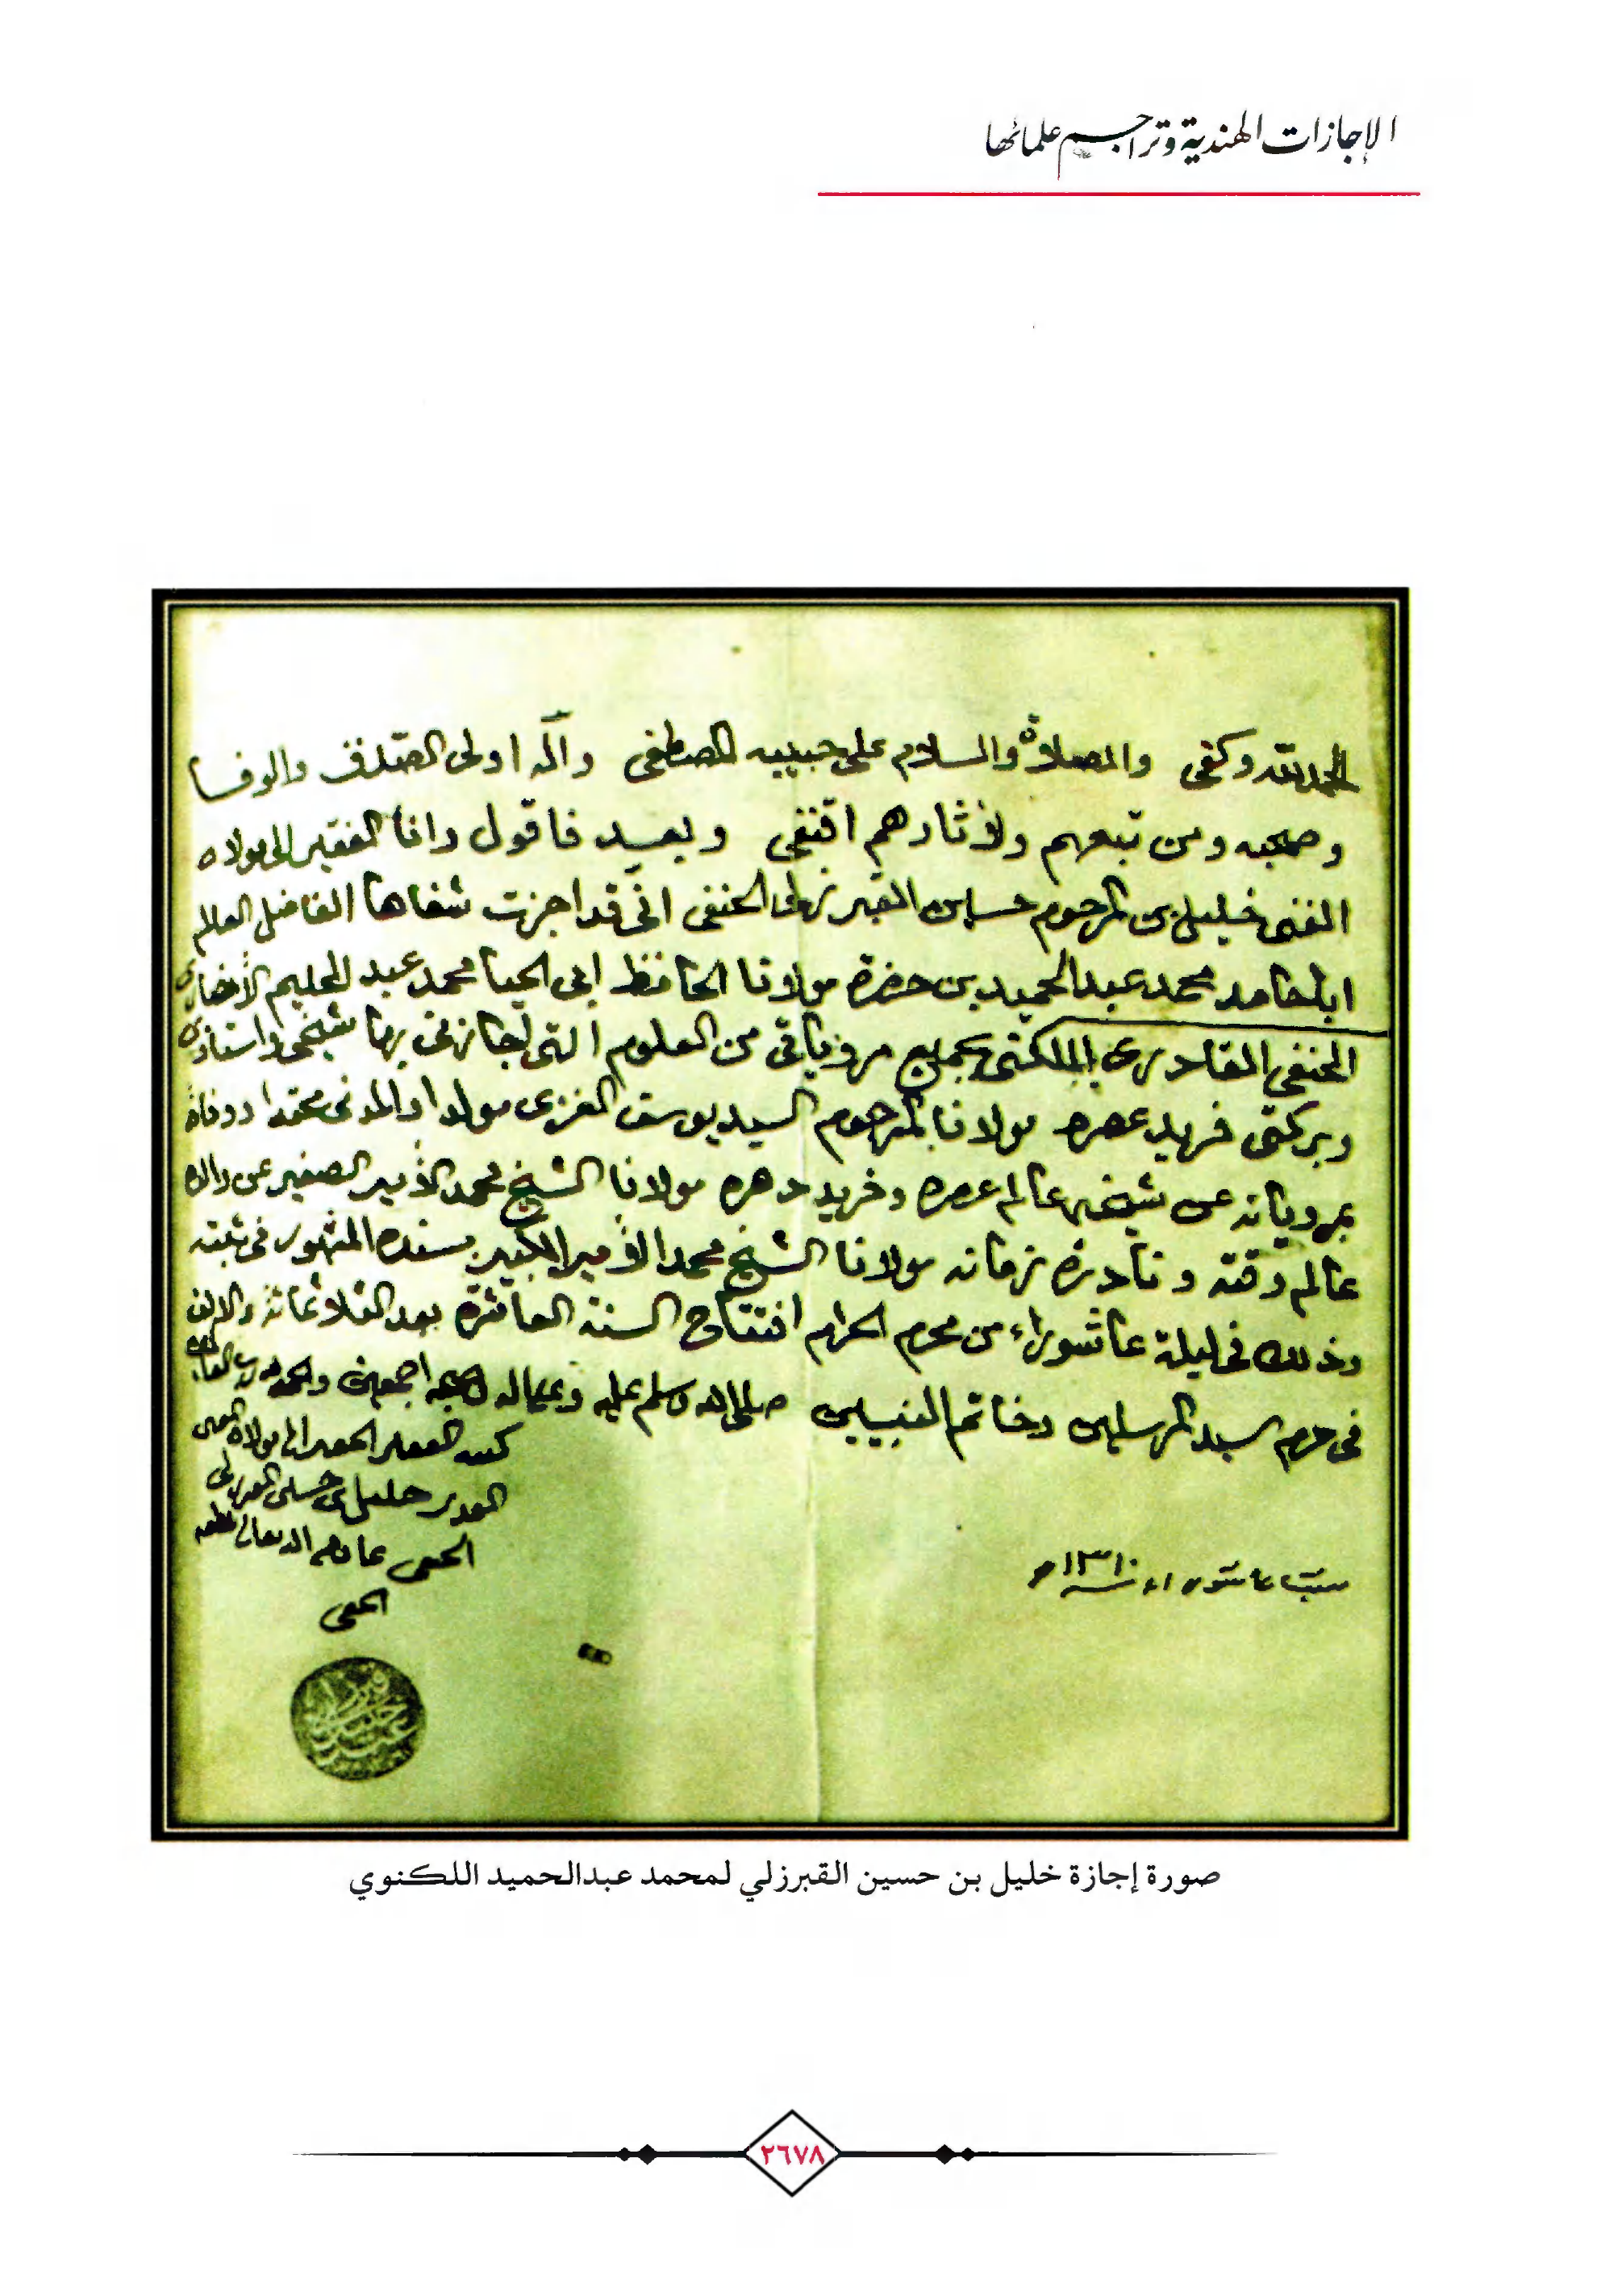 الإجازات الهندية وتراجم علمائها
الحمد لله وكفى والصلاة والسلام على حبيبه المصطفى وآله اولى الصدق والوفا
وصحبه ومن تبعهم ولأثارهم اقتفى وبعد فاقول وانا الفقير الى مولاه
الغنى خليل بن المرحوم حسين القبرزلى الحنفى انى قد اجزت شفاها الفاضل العالم
ابا حامد محمد عبد الحميد بن حضرة مولانا الحافظ ابى الحيا محمد عبد الحليم الأنصارى
الحنفى القادرى اللكنى بجميع مروياتى من العلوم التى اجازنى بها شيخى واستاذى
وبركتى فريد عصره مولانا المرحوم السيد يوسف الغزى مولدا والمدنى محتدا ووفاة
بمروياته عن شيخه عالم عصره وفريد دهره مولانا الشيخ محمد الأمير الصغير عن والده
عالم وقته ونادرة زمانه مولانا الشيخ محمد الأمير الكبير بسنده المشهور فى ثبته
وذلك فى ليلة عاشوراء من محرم الحرام افتتاح السنة العاشرة بعد الثلاثمائة والالف
فى حرم سيد المرسلين وخاتم النبيين صلى الله وسلم عليه وعلى اله وصحبه اجمعين والحمد لله رب العالمين
كتبه الفقير الحقير الى مولاه الغنى
القدير خليل بن حسين القبرزلى
الحنفى عاملهم الله تعالى بلطفه
الخفى
عاشوراء سنة ١٣١٠
صورة إجازة خليل بن حسين القبرزلي لمحمد عبدالحميد اللكنوي
٢٦٧٨